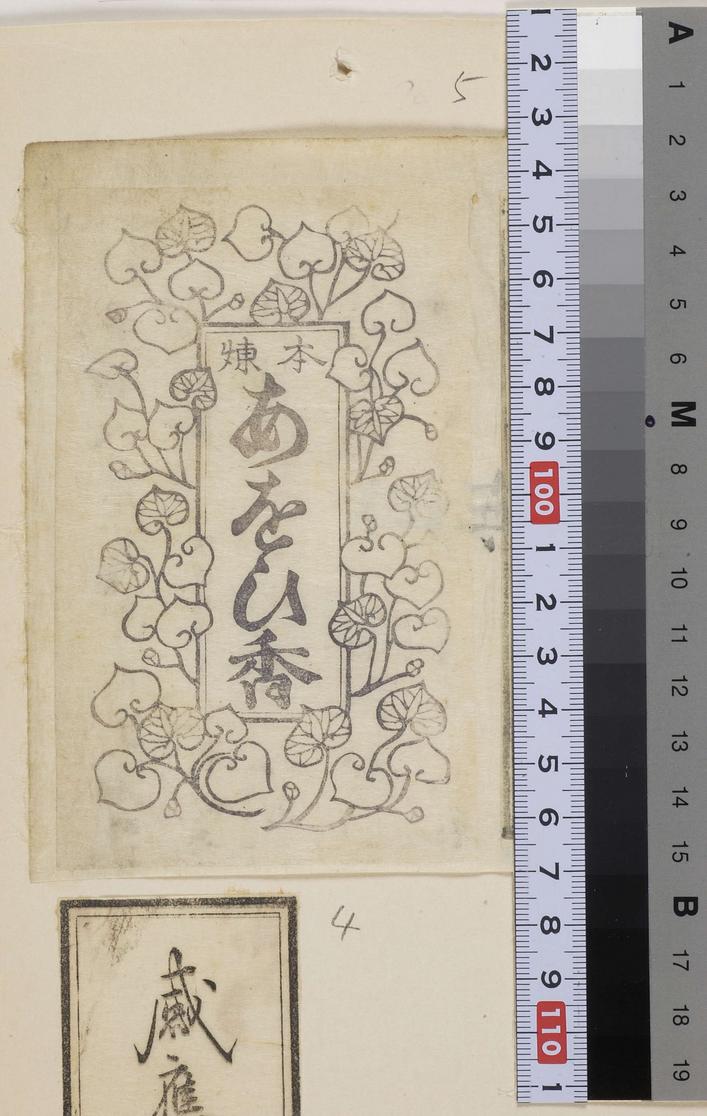 5
本煉
あをひ香
4
威應
A 1 2 3 4 5 6 M 8 9 10 11 12 13 14 15 B 17 18 19
1 2 3 4 5 6 7 8 9 100 1 2 3 4 5 6 7 8 9 110 1